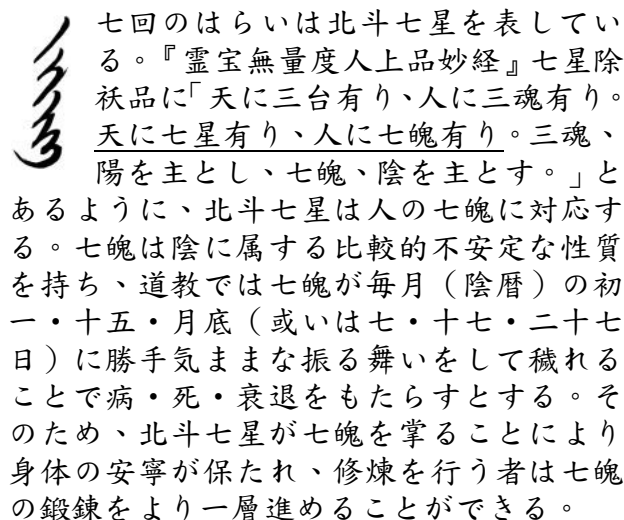 七回のはらいは北斗七星を表してい
る。『霊宝無量度人上品妙経』七星除
祅品に「天に三台有り、人に三魂有り。
天に七星有り、人に七魄有り。三魂、
陽を主とし、七魄、陰を主とす。」と
あるように、北斗七星は人の七魄に対応す
る。七魄は陰に属する比較的不安定な性質
を持ち、道教では七魄が毎月（陰暦）の初
一・十五・月底（或いは七・十七・二十七
日）に勝手気ままな振る舞いをして穢れる
ことで病・死・衰退をもたらすとする。そ
のため、北斗七星が七魄を掌ることにより
身体の安寧が保たれ、修煉を行う者は七魄
の鍛錬をより一層進めることができる。